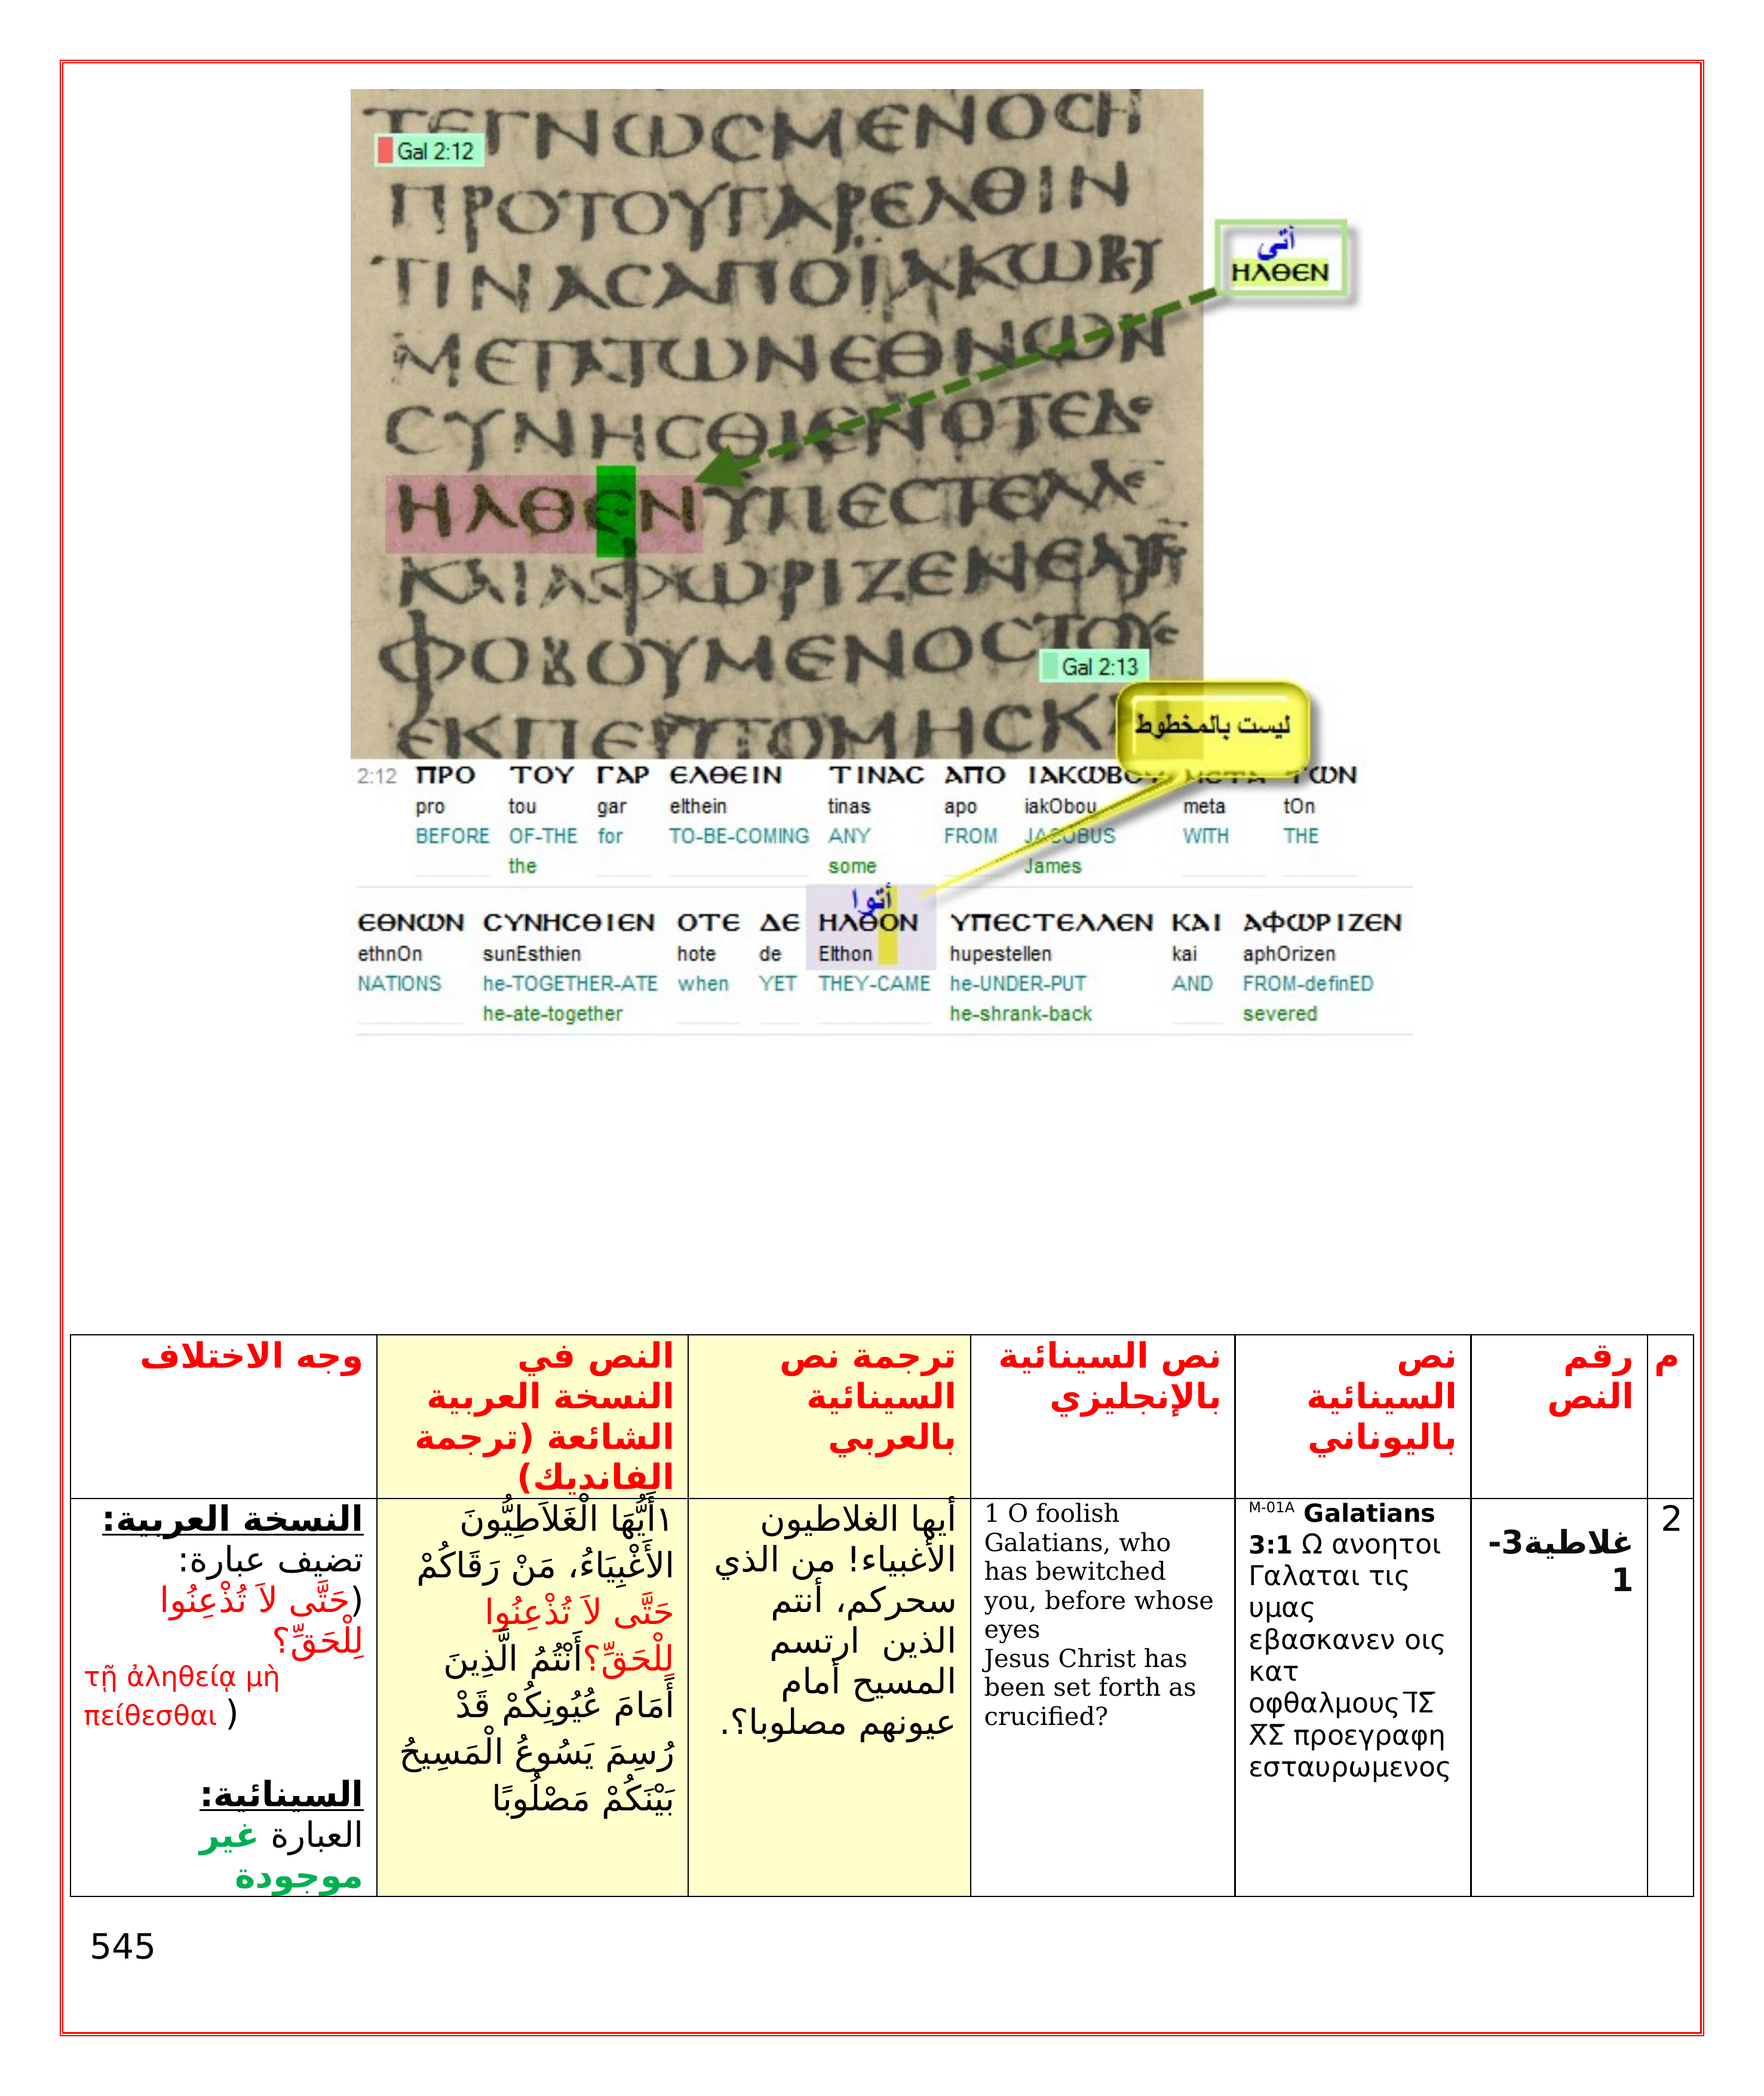 ΤΕΓΝωCΜΕΝΟCΗ
Gal 2:12
ΠΡΟΤΟΥΓΑΡΕΛΘΙΝ
ΤΙΝΑCΑΠΟΪΑΚωΒΥ
ΜΕΤΑΤωΝΕΘΝωΝ
CΥΝΗCΘΙΕΝΟΤΕΔΕ
ΗΛΘΕΝΥΠΕCΤΕΛΛΕ
ΚΑΙΑΦωΡΙΖΕΝΕΑΥΤΟ
ΦΟΒΟΥΜΕΝΟCΤΟΥC
Gal 2:13
ΕΚΠΕΡΙΤΟΜΗCΚ
أتى
ΗΛΘΕΝ
ليست بالمخطوط
2:12 ΠΡΟ ΤΟΥ ΓΑΡ ΕΛΘΕΙΝ ΤΙΝΑC ΑΠΟ ΙΑΚωΒΟΥ ΜΕΤΑ ΤωΝ
pro tou gar elthein tinas apo iakObou meta tOn
BEFORE OF-THE for TO-BE-COMING ANY FROM JACOBUS WITH THE
the some James
أتوا
ΕΘΝωΝ CΥΝΗCΘΙΕΝ ΟΤΕ ΔΕ ΗΛΘΟΝ ΥΠΕCΤΕΛΛΕΝ ΚΑΙ ΑΦωΡΙΖΕΝ
ethnOn sunEsthien hote de Elthon hupestellen kai aphOrizen
NATIONS he-TOGETHER-ATE when YET THEY-CAME he-UNDER-PUT AND FROM-definED
he-ate-together he-shrank-back severed
م
رقم
النص
نص
السينائية
باليوناني
نص السينائية
بالإنجليزي
ترجمة نص
السينائية
بالعربي
النص في
النسخة العربية
الشائعة (ترجمة
الفانديك)
وجه الاختلاف
2
غلاطية3-
1
M-01A Galatians
3:1 Ω ανοητοι
Γαλαται τις
υμας
εβασκανεν οις
κατ
οφθαλμους Ι̅Σ̅
Χ̅Σ̅ προεγραφη
εσταυρωμενος
1 O foolish
Galatians, who
has bewitched
you, before whose
eyes
Jesus Christ has
been set forth as
crucified?
أيها الغلاطيون
الأغبياء! من الذي
سحركم، أنتم
الذين ارتسم
المسيح أمام
عيونهم مصلوبا؟.
١أَيُّهَا الْغَلاَطِيُّونَ
الأَغْبِيَاءُ، مَنْ رَقَاكُمْ
حَتَّى لاَ تُذْعِنُوا
لِلْحَقِّ؟أَنْتُمُ الَّذِينَ
أَمَامَ عُيُونِكُمْ قَدْ
رُسِمَ يَسُوعُ الْمَسِيحُ
بَيْنَكُمْ مَصْلُوبًا
النسخة العربية:
تضيف عبارة:
(حَتَّى لاَ تُذْعِنُوا
لِلْحَقِّ؟
τῇ ἀληθείᾳ μὴ
πείθεσθαι )
السينائية:
العبارة غير
موجودة
545